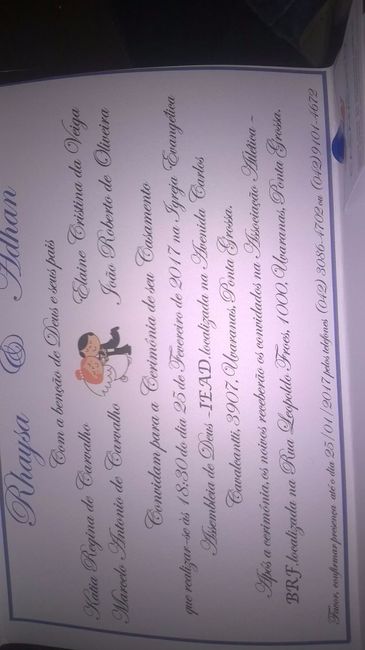 Rhaysa & Adhan
Com a benção de Deus e seus pais
Katia Regina de Carvalho Elaine Cristina da Veiga
Marcelo Antonio de Carvalho João Roberto de Oliveira
Convidam para a Cerimônia de seu Casamento
que realizar-se às 18:30 do dia 25 de Fevereiro de 2017 na Igreja Evangélica
Assembleia de Deus -IEAD, localizada na Avenida Carlos
Cavalcanti, 3907, Uvaranas, Ponta Grossa.
Após a cerimônia, os noivos receberão os convidados na Associação Atlética -
BRF, localizada na Rua Leopoldo Froes, 1000, Uvaranas, Ponta Grossa.
Favor, confirmar presença até o dia 25/01/2017 pelos telefones (042) 3086-4702 ou (042)9101-4672